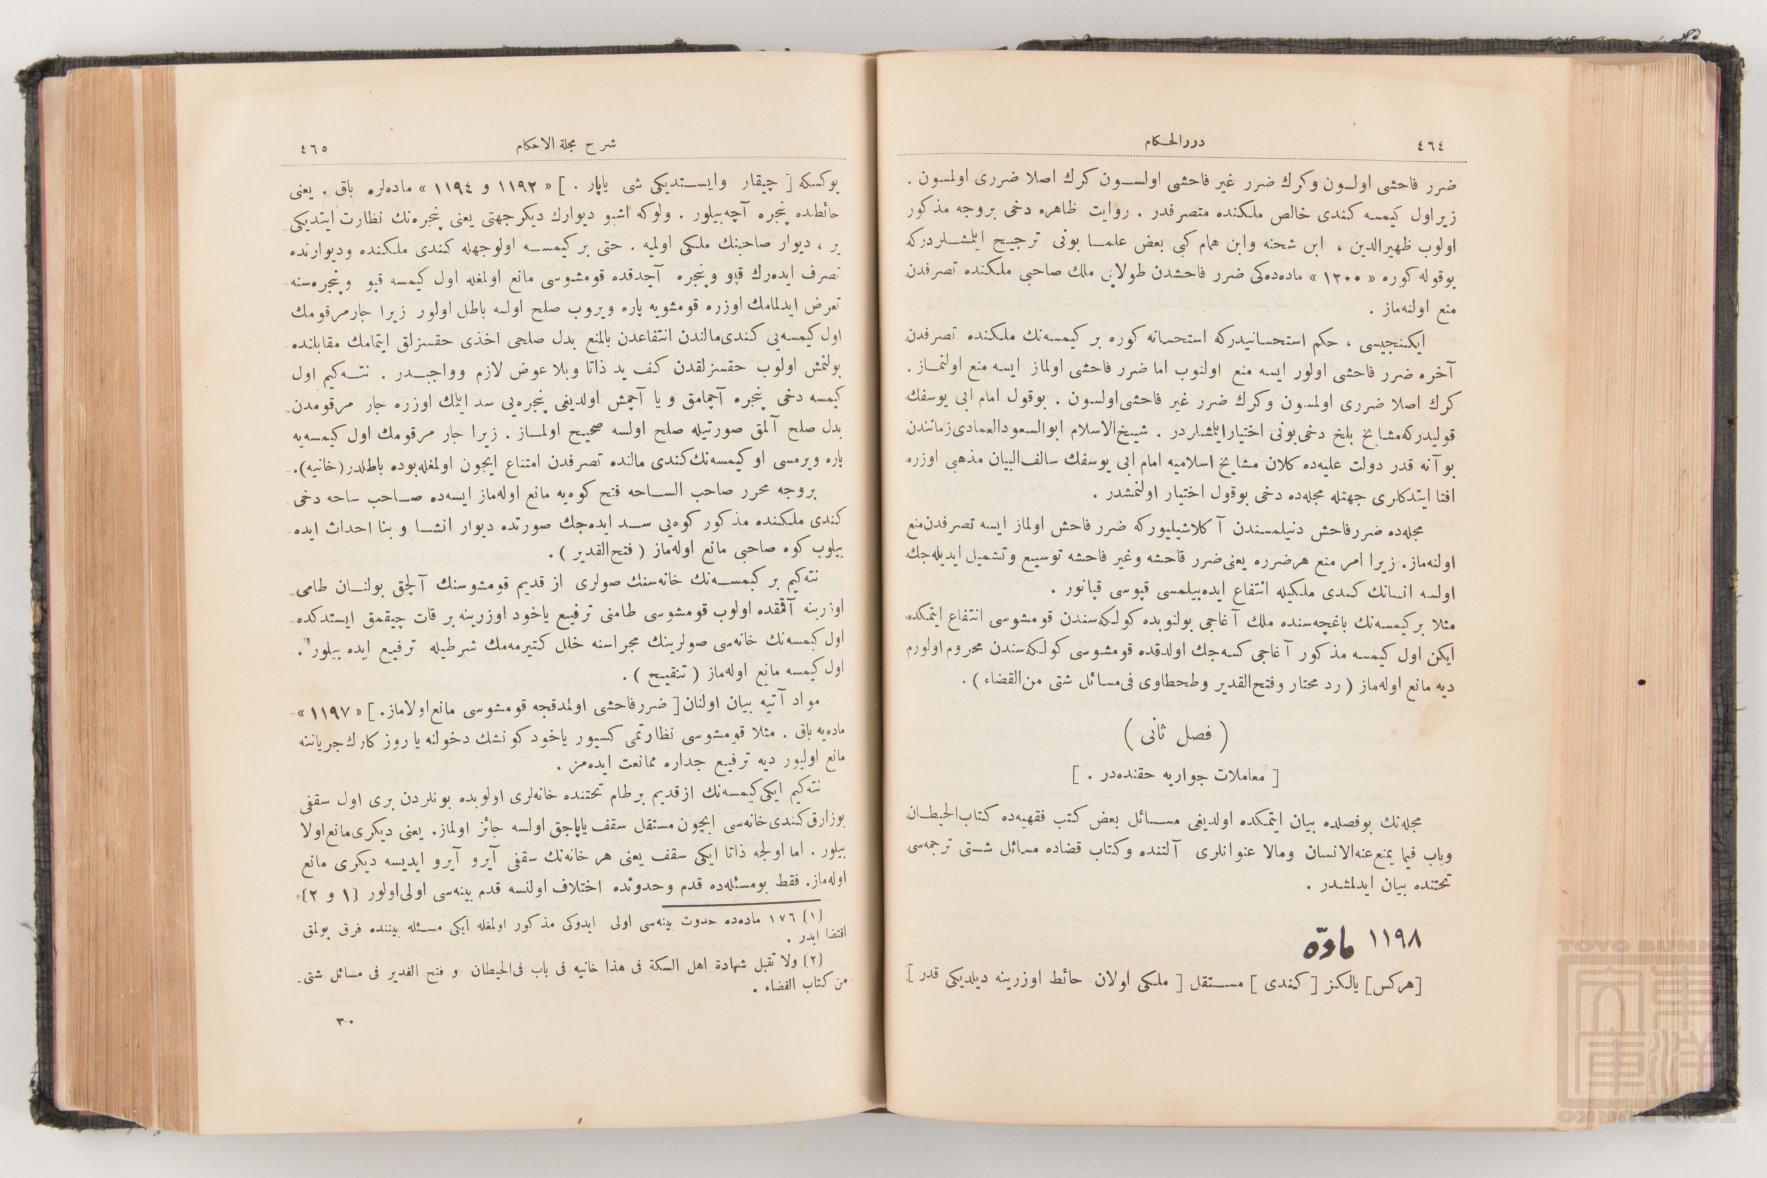 ٤٦٤
دررالحكام
ضرر فاحشی اولسون وكرك ضرر غیر فاحشی اولسون كرك اصلا ضرری اولمسون .
زیراول كیمسه كندی خالص ملكنده متصرفدر . روایت ظاهره دخی بروجه مذكور
اولوب ظهیرالدین ، ابن شحنه وابن همام كبی بعض علما بونی ترجیح ایلمشلردركه
بوقوله كوره « ١٢٠٠ » ماده‌ده‌كی ضرر فاحشدن طولایی ملك صاحبی ملكنده تصرفدن
منع اولنه‌ماز .
ایكنجیسی ، حكم استحسانیدركه استحسانه كوره بر كیمسه‌نك ملكنده تصرفدن
آخره ضرر فاحشی اولور ایسه منع اولنوب اما ضرر فاحشی اولماز ایسه منع اولنماز .
كرك اصلا ضرری اولمسون وكرك ضرر غیر فاحشی اولسون . بوقول امام ابی یوسفك
قولیدركه مشایخ بلخ دخی بونی اختیار ایلمشلردر . شیخ‌الاسلام ابوالسعودالعمادی زماننـدن
بو آنه قدر دولت علیه‌ده كلان مشایخ اسلامیه امام ابی یوسفك سالف‌البیان مذهبی اوزره
افتا ایتدكلری جهتله مجله‌ده دخی بوقول اختیار اولنمشدر .
مجله‌ده ضررفاحش دنیلمسندن آكلاشیلیوركه ضرر فاحش اولماز ایسه تصرفدن منع
اولنه‌ماز. زیرا امر منع هرضرره یعنی ضرر فاحشه وغیر فاحشه توسیع وتشمیل ایدیله‌جك
اولسه انسانك كندی ملكیله انتفاع ایده‌بیلمسی قپوسی قپانور .
مثلا بركیمسه‌نك باغچه‌سنده ملك آغاجی بولنوبده كولكه‌سندن قومشوسی انتفاع ایتمكده
ایكن اول كیمسه مذكور آغاجی كسه‌جك اولدقده قومشوسی كولكه‌سندن محروم اولورم
دیه مانع اوله‌ماز ( رد محتار وفتح‌القدیر وطحطاوی فی مسائل شتی من‌القضاء ) .
( فصل ثانی )
[ معاملات جواریه حقنده‌در . ]
مجله‌نك بوفصلده بیان ایتمكده اولدیغی مسائل بعض كتب فقهیه‌ده كتاب‌الحیطان
وباب فیما یمنع‌عنه‌الانسان ومالا عنوانلری آلتنده وكتاب قضاده مسائل شتی ترجمه‌سی
تحتنده بیان ایدلمشدر .
١١٩٨ مادّه
[هركس] یالكز [ كندی ] مستقل [ ملكی اولان حائط اوزرینه دیلدیكی قدر ]
شرح مجلة الاحكام
٤٦٥
یوكسكه [ چیقار وایستدیكی شی یاپار . ] « ١١٩٢ و ١١٩٤ » ماده‌لره باق . یعنی
حائطده پنجره آچه‌بیلور . ولوكه اشبو دیوارك دیكرجهتی یعنی پنجره‌نك نظارت ایتدیكی
یر ، دیوار صاحبنك ملكی اولمیه . حتی بر كیمسه اولوجهله كندی ملكنده ودیوارنده
تصرف ایده‌رك قپو وپنجره آچدقده قومشوسی مانع اولمغله اول كیمسه قپو وپنجره‌سنه
تعرض ایدلمامك اوزره قومشویه پاره ویروب صلح اولسه باطل اولور زیرا جارمرقومك
اول كیمسه‌یی كندی مالندن انتفاعدن بالمنع بدل صلحی اخذی حقسزلق ایتمامك مقابلنده
بولنمش اولوب حقسزلقدن كف ید ذاتا وبلا عوض لازم وواجبدر . نته‌كیم اول
كیمسه دخی پنجره آچمامق و یا آچمش اولدیغی پنجره‌یی سد ایتمك اوزره جار مرقومدن
بدل صلح آلمق صورتیله صلح اولسه صحیح اولماز . زیرا جار مرقومك اول كیمسه‌یه
پاره ویرمسی او كیمسه‌نك كندی مالنده تصرفدن امتناع ایچون اولمغله بوده باطلدر (خانیه).
بروجه محرر صاحب الساحه فتح كوه‌یه مانع اوله‌ماز ایسه‌ده صاحب ساحه دخی
كندی ملكنده مذكور كوه‌یی سد ایده‌جك صورتده دیوار انشا و بنا احداث ایده
بیلوب كوه صاحبی مانع اوله‌ماز ( فتح‌القدیر ) .
نته‌كیم بر كیمسه‌نك خانه‌سنك صولری از قدیم قومشوسنك آلچق بولنان طامی
اوزرینه آقمقده اولوب قومشوسی طامنی ترفیع یاخود اوزرینه بر قات چیقمق ایستدكده
اول كیمسه‌نك خانه‌سی صولرینك مجراسنه خلل كتیرمه‌مك شرطیله ترفیع ایده بیلور .
اول كیمسه مانع اوله‌ماز ( تنقیح ) .
مواد آتیه بیان اولنان [ ضررفاحشی اولمدقجه قومشوسی مانع‌اولاماز. ] « ١١٩٧ »
ماده‌یه باق . مثلا قومشوسی نظارتمی كسیور یاخود كونشك دخولنه یا روزكارك جریاننه
مانع اولیور دیه ترفیع جداره ممانعت ایده‌مز .
نته‌كیم ایكی كیمسه‌نك ازقدیم برطام تحتنده خانه‌لری اولوبده بونلردن بری اول سقفی
بوزارق كندی خانه‌سی ایچون مستقل سقف یاپاجق اولسه جائز اولماز. یعنی دیكری مانع اولا
بیلور . اما اولجه ذاتا ایكی سقف یعنی هر خانه‌نك سقفی آیرو آیرو ایدیسه دیكری مانع
اوله‌ماز. فقط بومسئله‌ده قدم وحدوثده اختلاف اولنسه قدم بینه‌سی اولی‌اولور (١ و ٢).
(١) ١٧٦ ماده‌ده حدوث بینه‌سی اولی ایدوكی مذكور اولمغله ایكی مسئله بیننده فرق بولمق
اقتضا ایدر .
(٢) ولا تقبل شهادة اهل السكة فی هذا خانیه فی باب فی‌الحیطان و فتح القدیر فی مسائل شتی
من كتاب القضاء .
٣٠
TOYO BUNKO